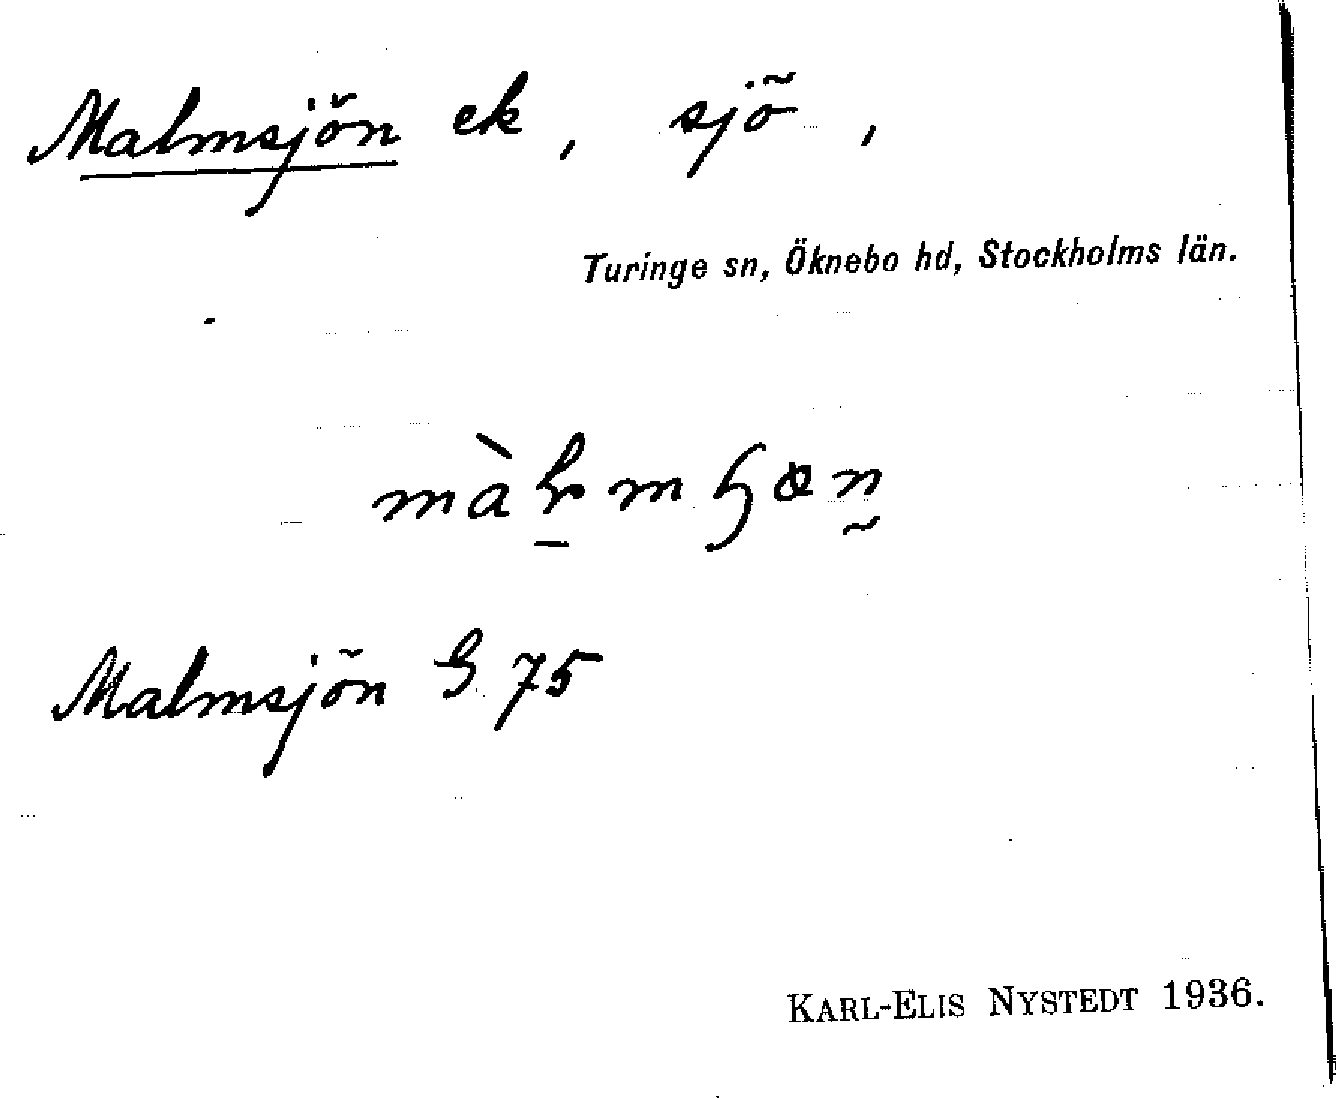 Malmsjön ek, sjö,
Turinge sn, Öknebo hd, Stockholms län.
Malmsjön G 75
KARL-ELIS NYSTEDT 1936.